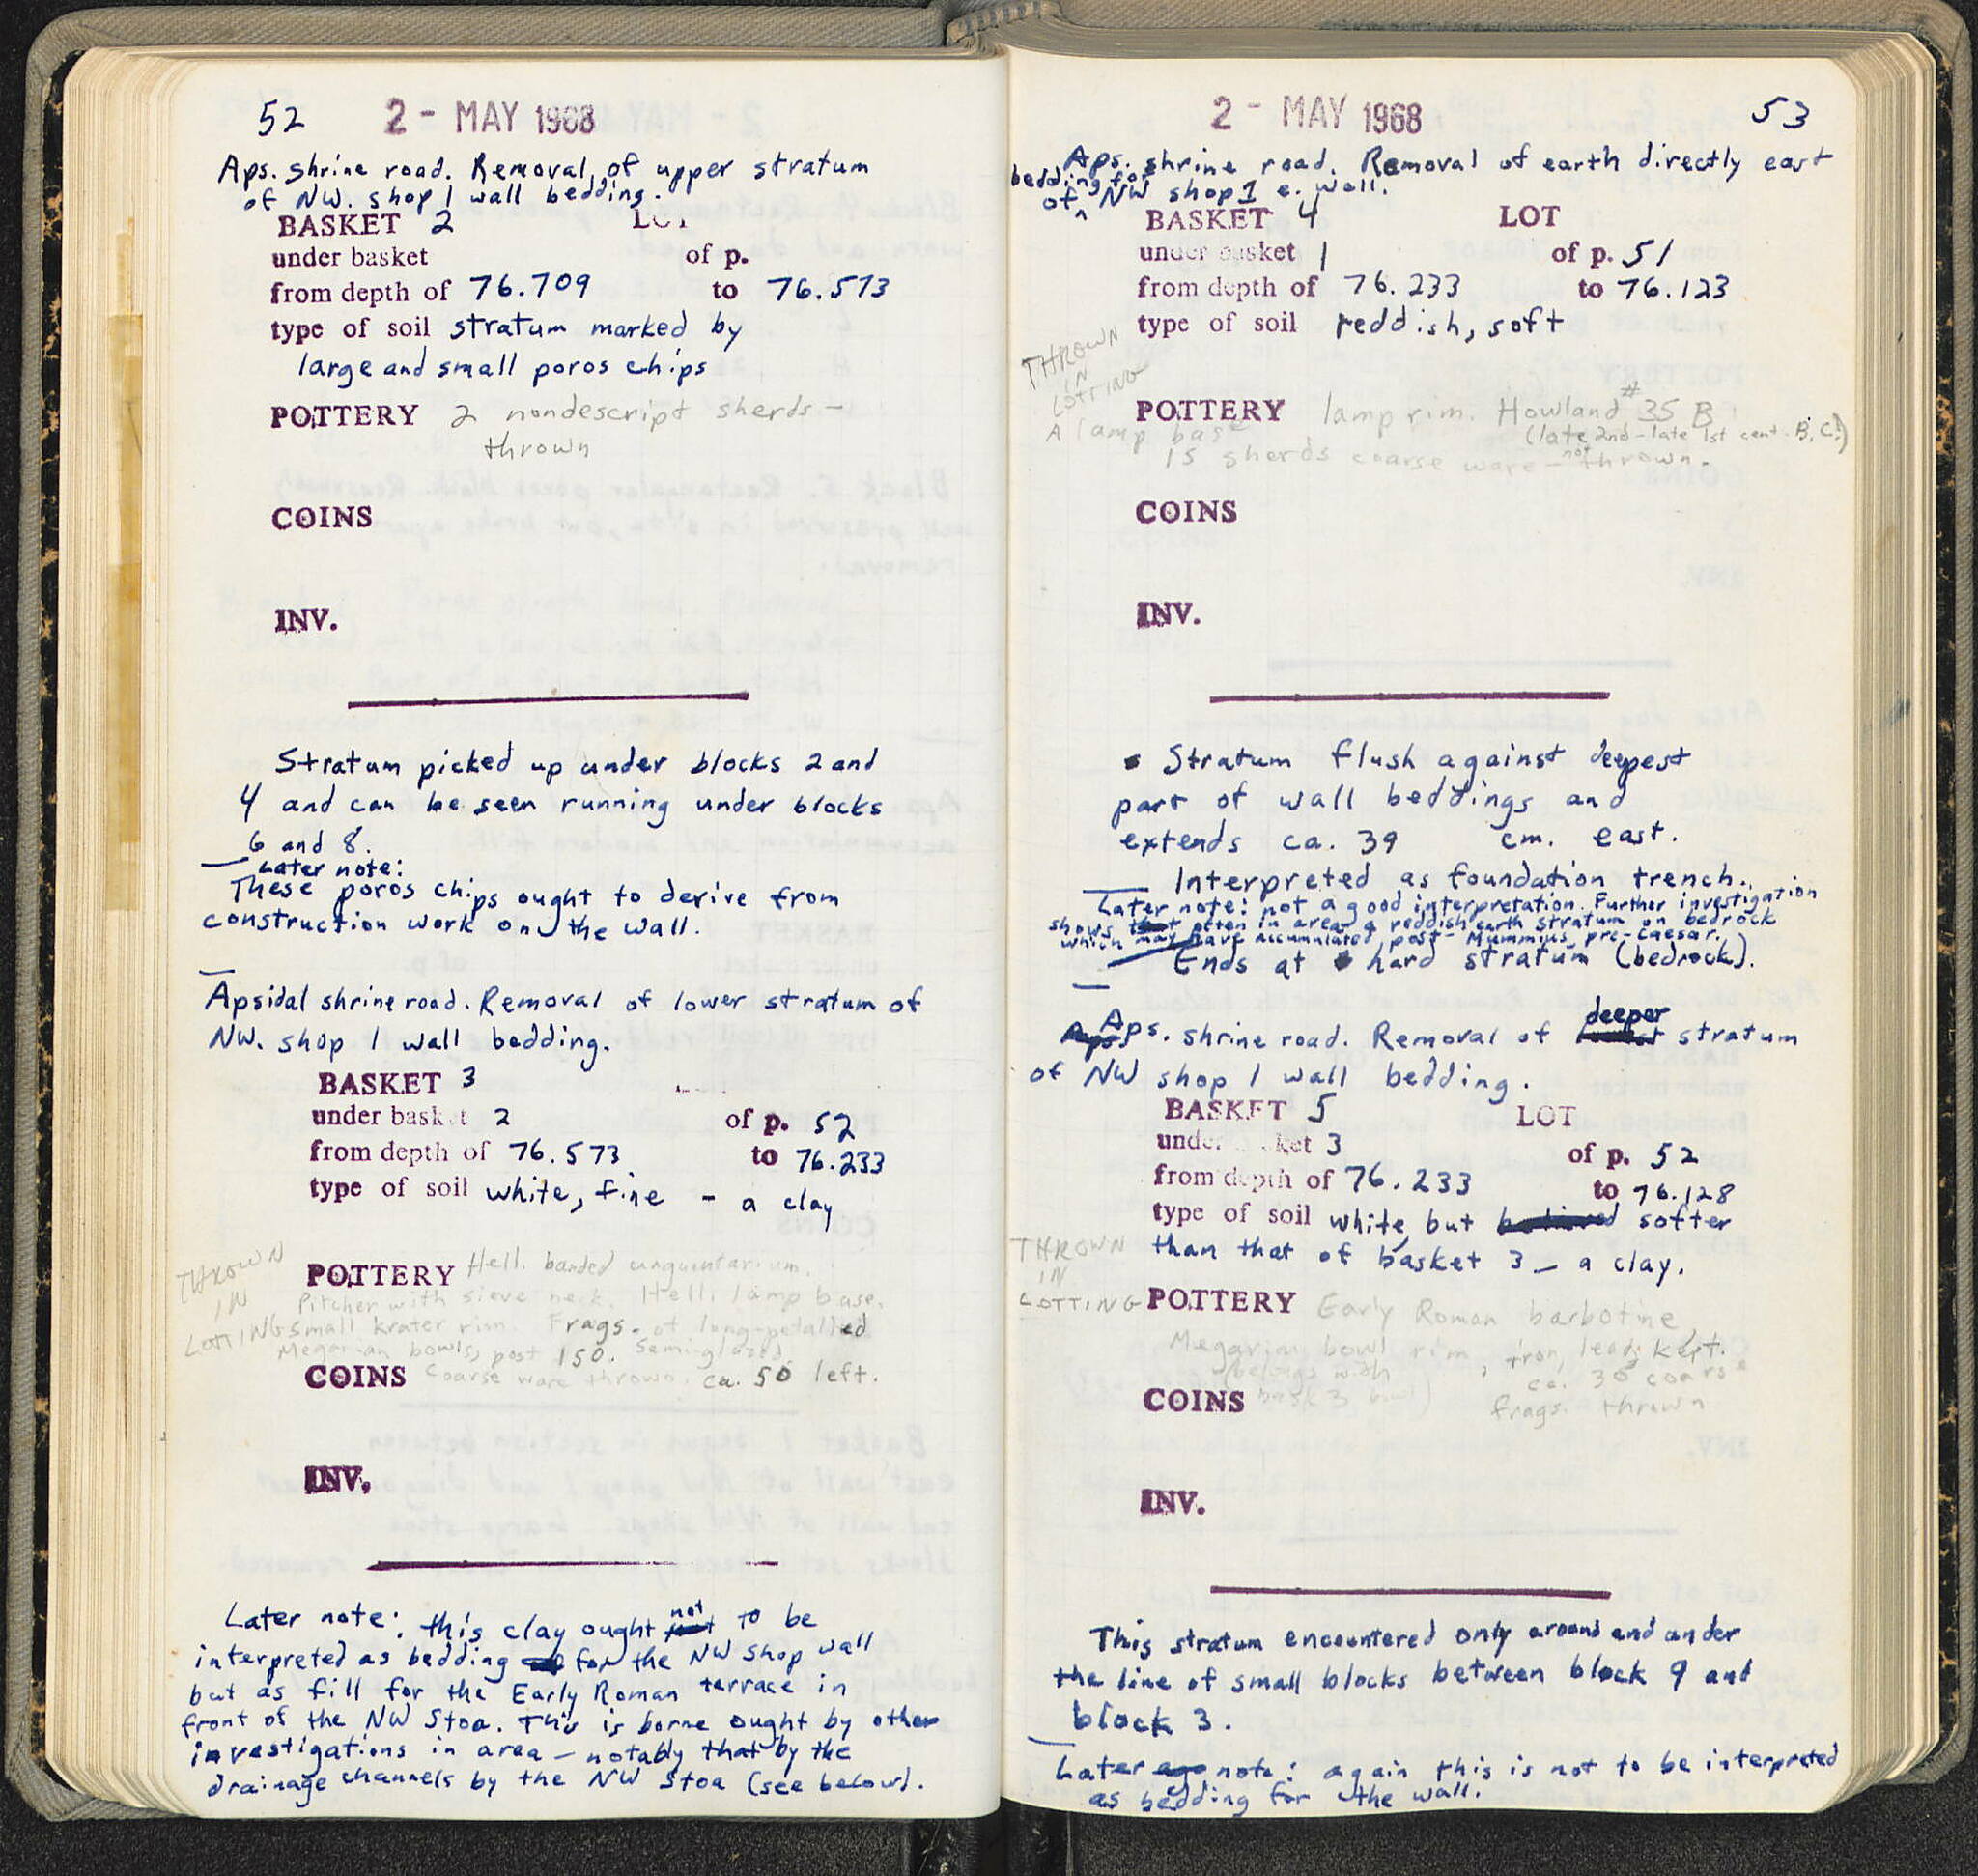 52 2 - MAY 1968
Aps. shrine road. Removal of upper stratum
of NW. shop 1 wall bedding.
BASKET 2 LOT
under basket of p.
from depth of 76.709 to 76.573
type of soil stratum marked by
large and small poros chips
POTTERY 2 nondescript sherds -
thrown
COINS
INV.
Stratum picked up under blocks 2 and
4 and can be seen running under blocks
6 and 8.
Later note:
These poros chips ought to derive from
construction work on the wall.
Apsidal shrine road. Removal of lower stratum of
NW. shop 1 wall bedding.
BASKET 3
under basket 2 of p. 52
from depth of 76.573 to 76.233
type of soil white, fine - a clay
THROWN
IN
LOTTING
POTTERY Hell. banded unguentarium.
Pitcher with sieve neck. Hell. lamp base.
Small krater rim. Frags. of long-petalled
Megarian bowls, post 150. Semiglazed.
COINS Coarse ware thrown. ca. 50 left.
INV.
Later note: this clay ought not to be
interpreted as bedding for the NW shop wall
but as fill for the Early Roman terrace in
front of the NW Stoa. This is borne ought by other
investigations in area - notably that by the
drainage channels by the NW Stoa (see below).
2 - MAY 1968 53
Aps. shrine road. Removal of earth directly east
of bedding for NW shop 1 e. wall.
BASKET 4 LOT
under basket 1 of p. 51
from depth of 76.233 to 76.123
type of soil reddish, soft
THROWN
IN
LOTTING
POTTERY lamp rim. Howland #35 B
(late 2nd - late 1st cent. B.C.)
A lamp base
15 sherds coarse ware - not thrown.
COINS
INV.
Stratum flush against deepest
part of wall beddings and
extends ca. 39 cm. east.
Interpreted as foundation trench.
Later note: not a good interpretation. Further investigation
shows often in area a reddish earth stratum on bedrock
which may have accumulated post-Mummius, pre-Caesar.
Ends at hard stratum (bedrock).
Aps. shrine road. Removal of deeper stratum
of NW shop 1 wall bedding.
BASKET 5 LOT
under basket 3 of p. 52
from depth of 76.233 to 76.128
type of soil white, but softer
than that of basket 3 - a clay.
THROWN
IN
LOTTING
POTTERY Early Roman barbotine,
Megarian bowl rim, iron, lead; kept.
(belongs with ca. 30 coarse
bask 3 bowl) frags. thrown
COINS
INV.
This stratum encountered only around and under
the line of small blocks between block 9 and
block 3.
Later note: again this is not to be interpreted
as bedding for the wall.